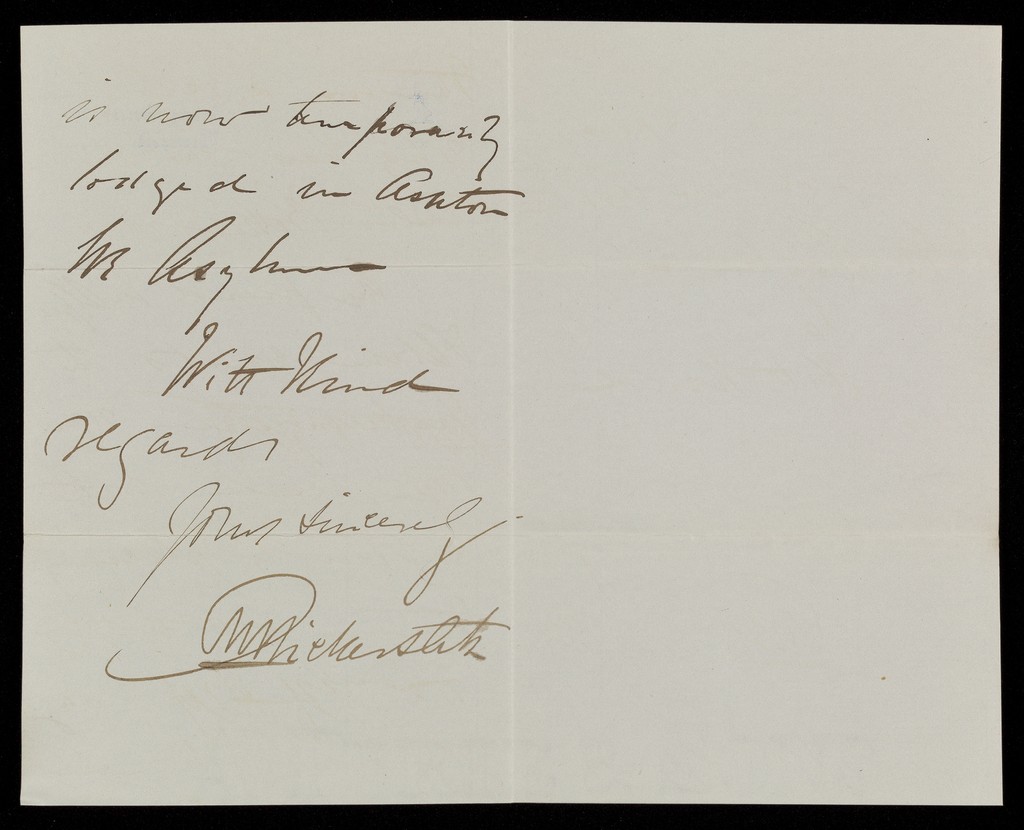 is now temporarily
lodged in Ashton
Asylum
With Kind
regards
Yours sincerely
Bickersteth